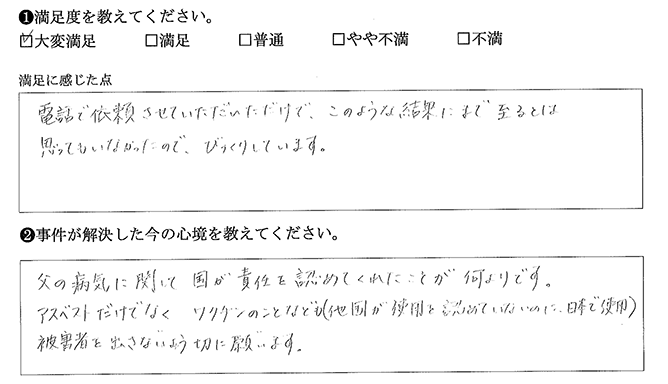 ❶満足度を教えてください。
☑大変満足 □満足 □普通 □やや不満 □不満
満足に感じた点
電話で依頼させていただいただけで、このような結果にまで至るとは
思ってもいなかったので、びっくりしています。
❷事件が解決した今の心境を教えてください。
父の病気に関して 国が責任を認めてくれたことが何よりです。
アスベストだけでなく ワクチンのことなども(他国が使用を認めていないのに、日本で使用)
被害者を出さないよう切に願います。